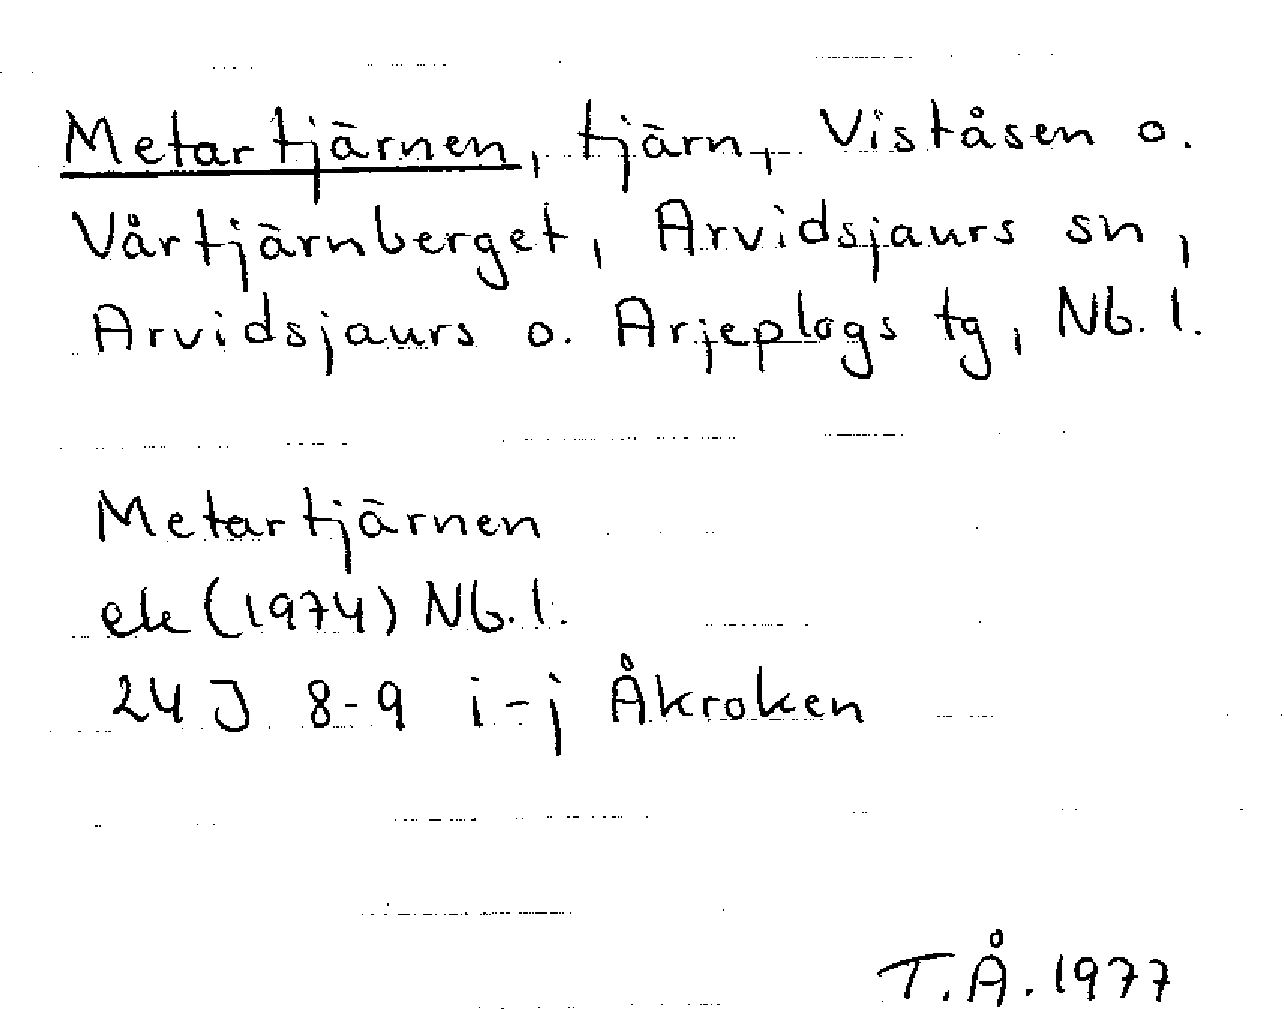 Metartjärnen, tjärn, Viståsen o.
Vårtjärnberget, Arvidsjaurs sn,
Arvidsjaurs o. Arjeplogs tg, Nb. l.
Metartjärnen
ek (1974) Nb. l.
24 J 8-9 i-j Åkroken
T.Å. 1977